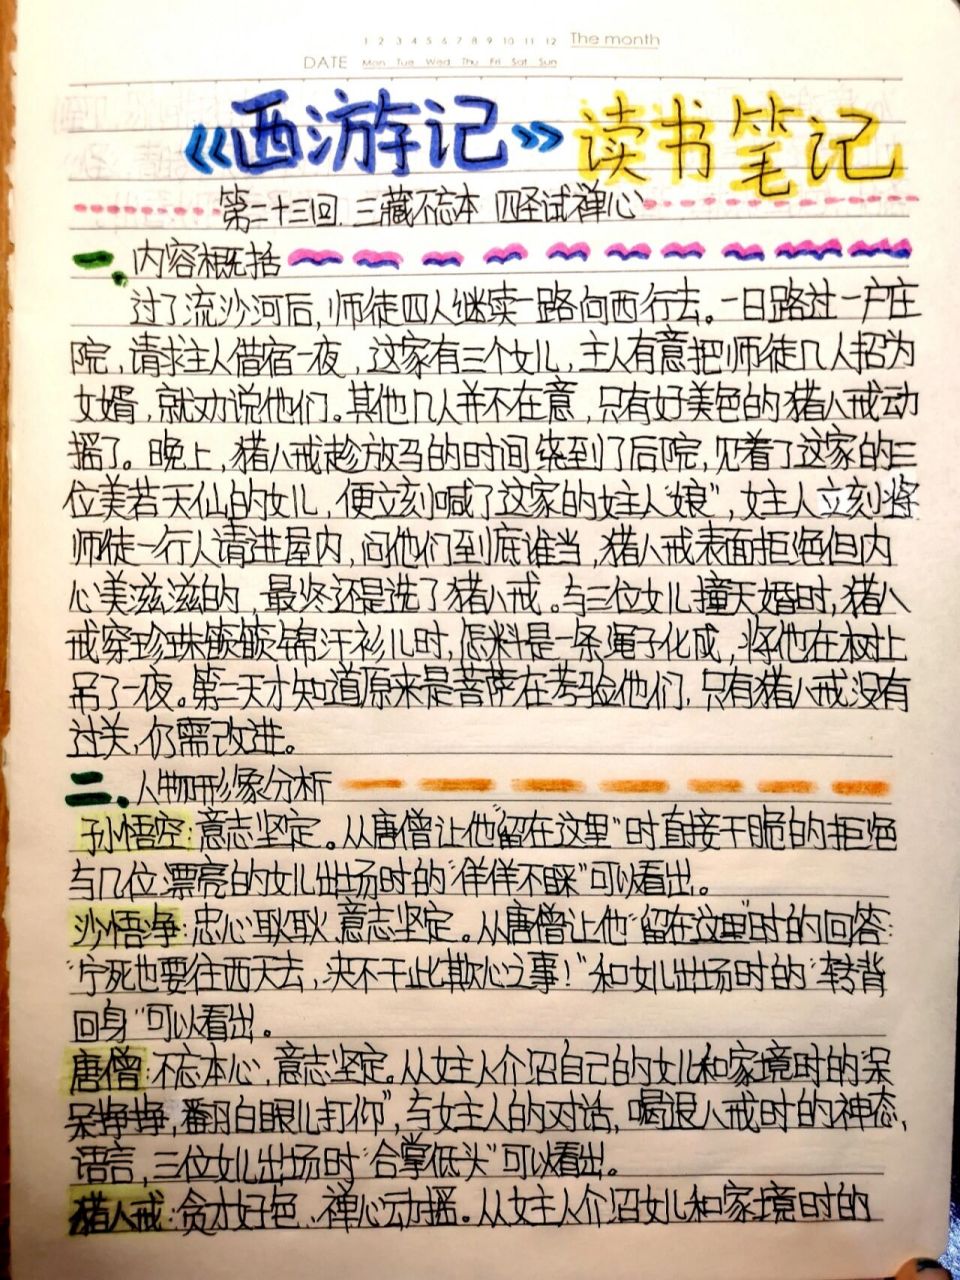 1 2 3 4 5 6 7 8 9 10 11 12 The month
DATE Mon Tue Wed Thu Fri Sat Sun
《西游记》读书笔记
第二十三回 三藏不忘本 四圣试禅心
一、内容概括
过了流沙河后,师徒四人继续一路向西行去。一日路过一户庄
院,请求主人借宿一夜,这家有三个女儿,主人有意把师徒几人招为
女婿,就劝说他们。其他几人并不在意,只有好美色的猪八戒动
摇了。晚上,猪八戒趁放马的时间绕到了后院,见着了这家的三
位美若天仙的女儿,便立刻喊了这家的女主人“娘”,女主人立刻将
师徒一行人请进屋内,问他们到底谁当,猪八戒表面拒绝但内
心美滋滋的,最终还是选了猪八戒。与三位女儿撞天婚时,猪八
戒穿珍珠篏篏锦汗衫儿时,怎料是一条绳子化成,将他在树上
吊了一夜。第二天才知道原来是菩萨在考验他们,只有猪八戒没有
过关,仍需改进。
二、人物形象分析
孙悟空:意志坚定。从唐僧让他“留在这里”时直接干脆的拒绝
与几位漂亮的女儿出场时的“佯佯不睬”可以看出。
沙悟净:忠心耿耿,意志坚定。从唐僧让他“留在这里”时的回答:
“宁死也要往西天去,决不干此欺心之事!”和女儿出场时的“转背
回身”可以看出。
唐僧:不忘本心,意志坚定。从女主人介绍自己的女儿和家境时的“呆
呆挣挣,翻白眼儿打仰”,与女主人的对话,喝退八戒时的神态,
语言,三位女儿出场时“合掌低头”可以看出。
猪八戒:贪财好色、禅心动摇。从女主人介绍女儿和家境时的